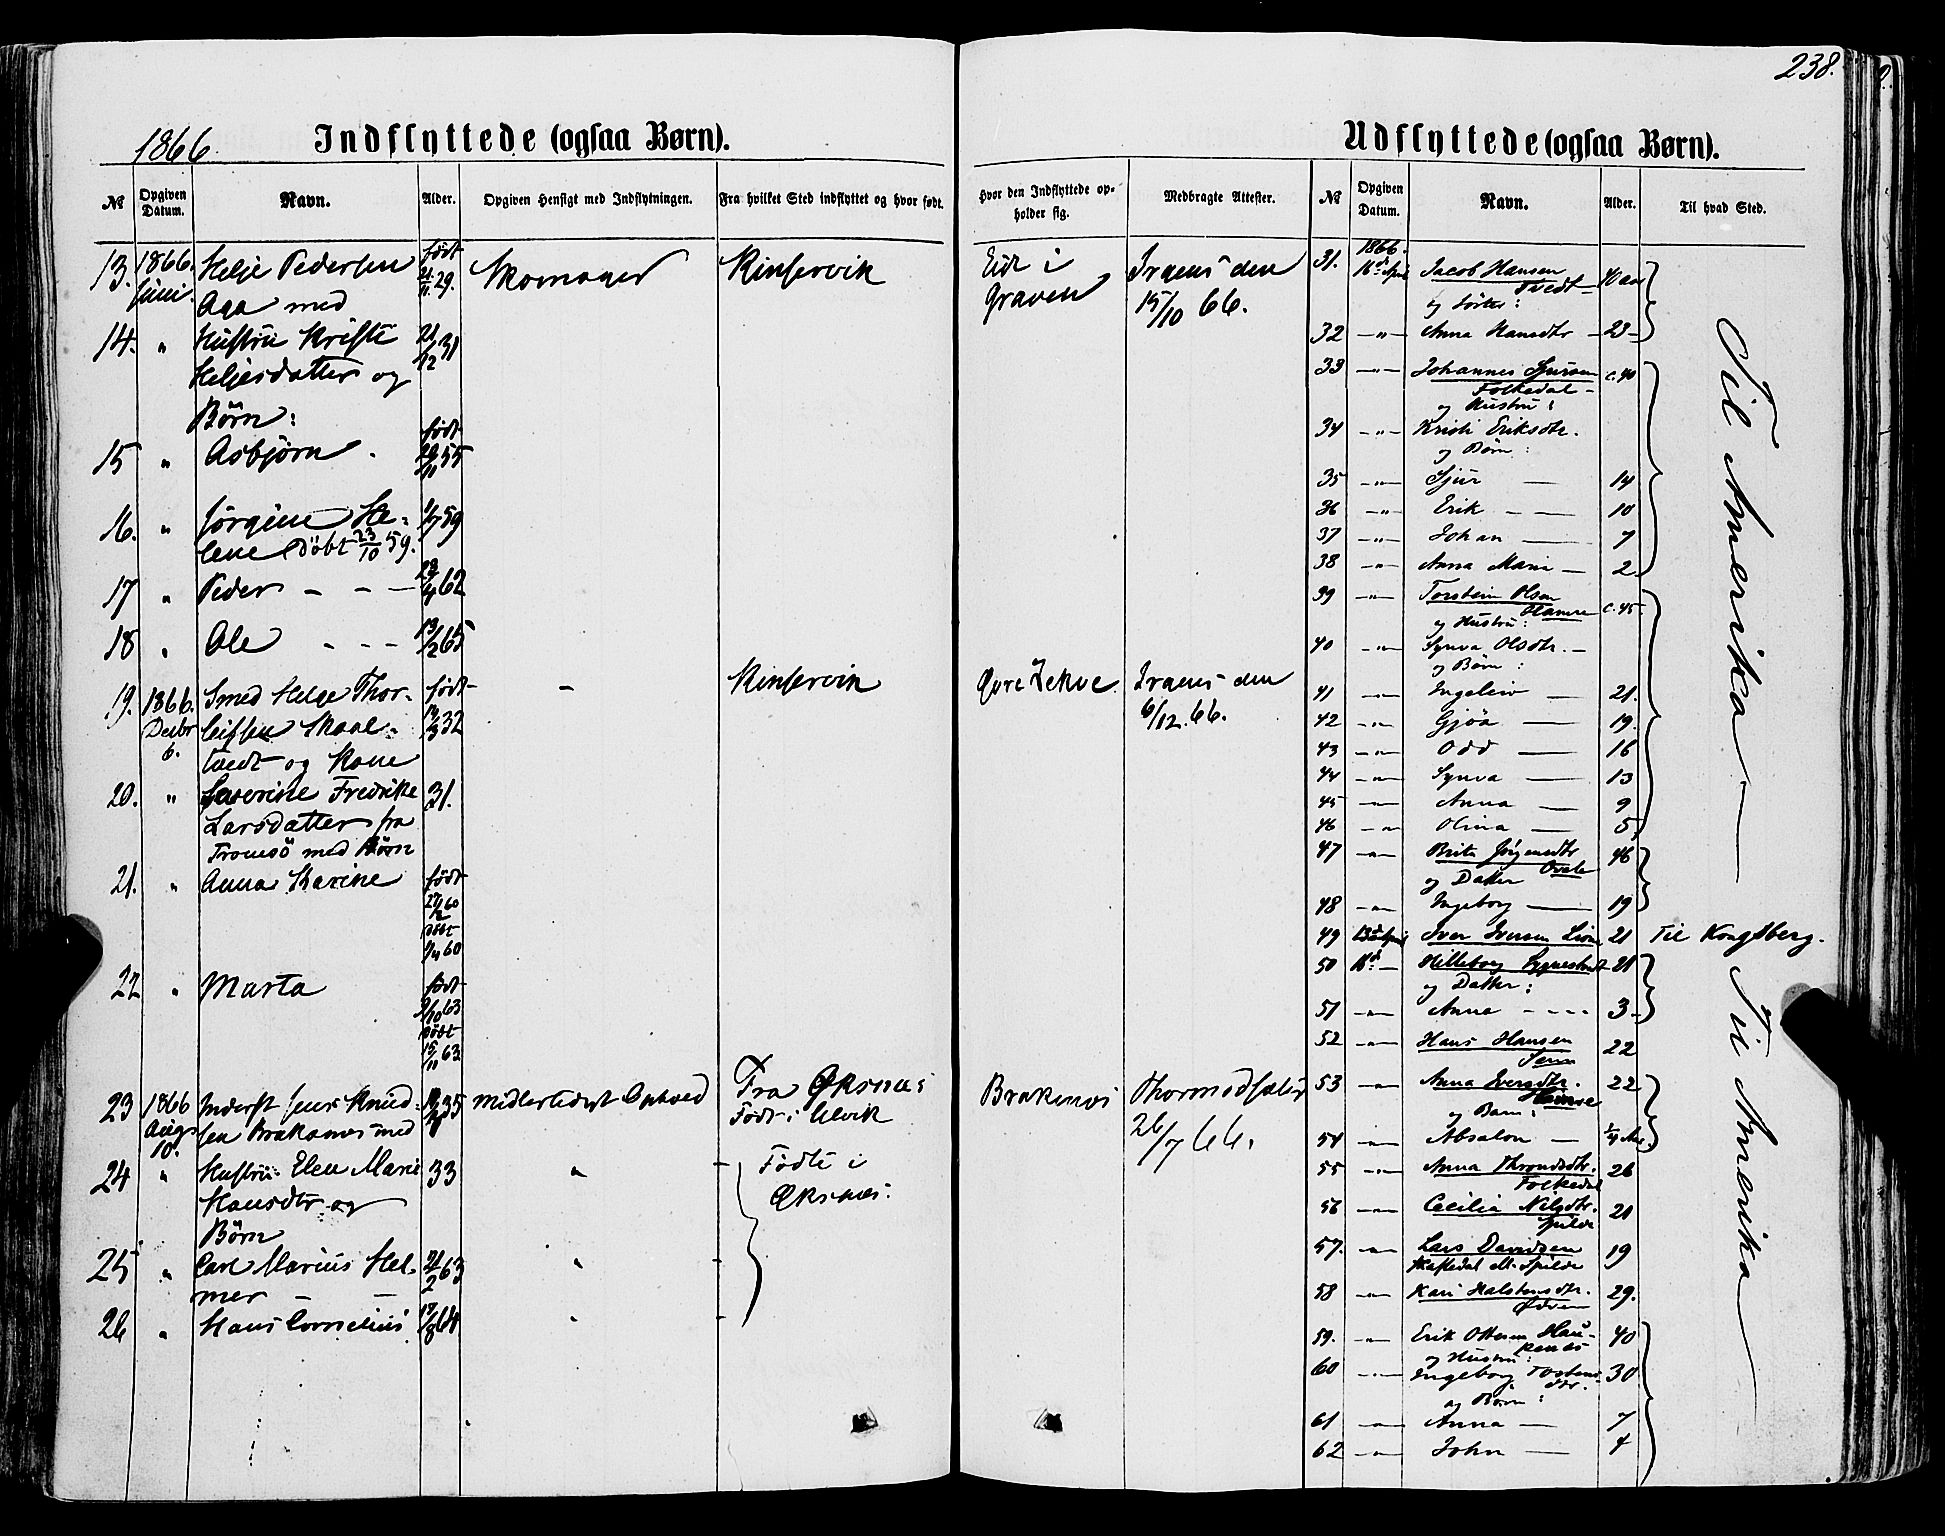 238.
1866.
Indflyttede (ogsaa Børn).
№
Opgiven Datum.
Navn.
Alder.
Opgiven Hensigt med Indflytningen.
Fra hvilket Sted indflyttet og hvor født.
Hvor den Indflyttede opholder sig.
Medbragte Attester.
13. 1866. Helje Pedersen født Skomager Kinservik Eide i Iraens den
Juni. Aga med 29. Graven 15/10 66.
14. " Hustru Kristi 31
Heljesdatter og
Børn:
15 " Asbjørn født 55
16. " Jørgine He- 59
lene Døbt 23/10 59.
17 " Peder - - - 62
18 " Ole - - - 65
19. 1866. Smed Helge Thor- født - Kinservik Øvre Lekve Iraens den
Decbr leifsen Skaal- 32 6/12. 66.
6. tvedt og Kone
20. " Severine Fredrikke 31.
Larsdatter fra
Tromsö med Børn
21. " Anna Karine født
60
Døbt
60
22 " Marta født
63
Døbt
15/11 63
23 1866 Inderst Jens Knud- 35 Midlertidigt Ophold Fra Øksnes Braknæs Thormodsæter
Augs sen Braknæs med Født i Ulvik 26/7 66.
10.
24 " Hustru Elen Marie 33 " Fødte i
Hansdtr og Øksnes.
Børn
25 " Carl Marius Hel- 63 "
mer - -
26 " Hans Cornelius 64 "
Udflyttede (ogsaa Børn).
№
Opgiven Datum.
Navn.
Alder.
Til hvad Sted.
31. 1866. Jacob Hansen
16d April Tvedt
og Søster:
32 -"- Anna Hansdtr - 23-
33 -"- Johannes Sjursen c. 40
Folkedal -
og Hustru:
34 -"- Kristi Eriksdtr.
og Børn:
35 -"- Sjur - 14
36 -"- Erik - - 10
37 -"- Johan - 7
38 -"- Anna Marie - 2.
39 -"- Torstein Olsen c. 45
Hamre
og Hustru:
40 -"- Synva Olsdtr. -
og Børn:
41 -"- Ingeleiv - 21.
42 -"- Gjøa - 19.
43 -"- Odd - 16
44 -"- Synva - 13
45 -"- Anna - 9
46 -"- Olina - 5
47 -"- Brita Jørgensdtr 46
og Datter
48 -"- Ingeborg - 19
49 13d April Iver Iversen 21 Til Kongsberg.
50 16d - 21
og Datter:
51 -"- Anna - - - - 3-
52 -"- Hans Hansen 22
53 -"- Anna Iversdtr. 22
og Barn:
54 -"- Absalon - 1/4 Aar.
55 -"- Anna Throndsdtr. 26
Folkedal
56 -"- Cecilia Nilsdtr. 21
Spilde
57. -"- Lars Davidsen 19
58 -"- Kari Halstensdtr. 29.
59. -"- Erik Ottesen Hau- 40
kenæs
og Hustru:
60 -"- Ingeborg Tostens- 30
dtr.
og Børn:
61 -"- Anna - 7
62 -"- John - 4
Til Amerika
Til Amerika